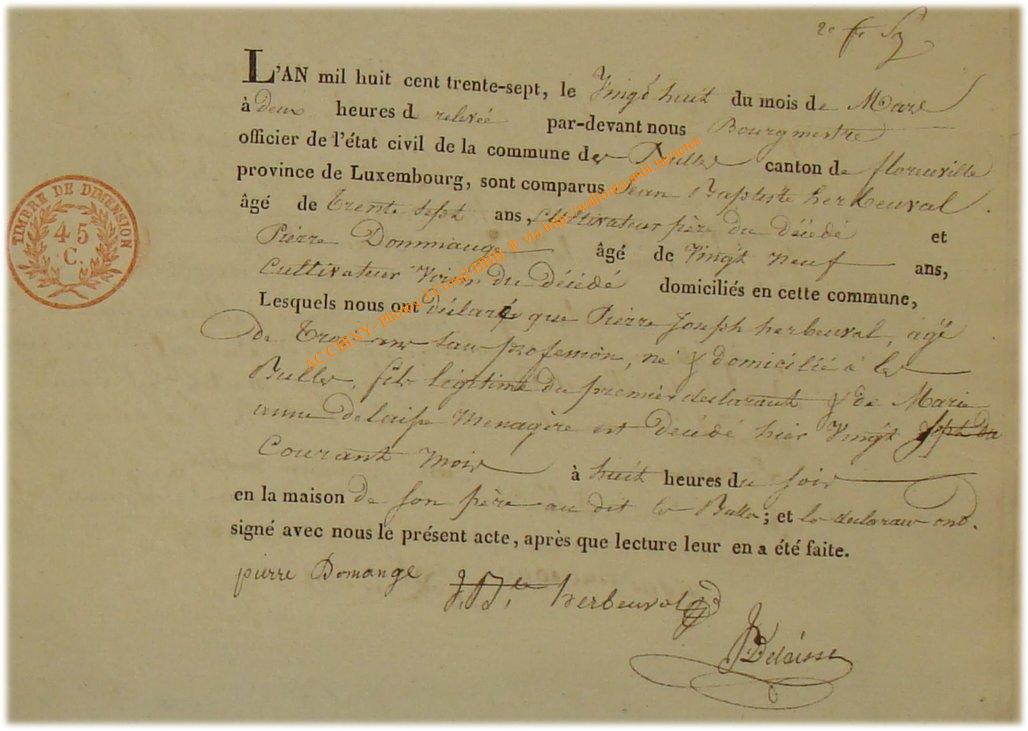 TIMBRE DE DIMENSION
45
C.
L'AN mil huit cent trente-sept, le Vingt huit du mois de Mars
à deux heures d relevée par-devant nous Bourgmestre
officier de l'état civil de la commune de Bulles canton de florenville
province de Luxembourg, sont comparus Jean Baptiste herbeuval
âgé de trente sept ans, Cultivateur père du Décédé et
Pierre Dommange âgé de Vingt neuf ans,
Cultivateur Voisin du décédé domiciliés en cette commune,
Lesquels nous ont déclaré que Pierre Joseph herbeuval, agé
de trois ans sans profession, né & domicilié à les
Bulles, fils légitime du premier declarant & de Marie
anne Delaisse Menagère est Décédé hier Vingt Sept du
Courant Mois à huit heures du soir
en la maison de son père au dit les Bulles; et les declarans ont
signé avec nous le présent acte, après que lecture leur en a été faite.
pierre Domange
J. B.te herbeuval
Delaisse